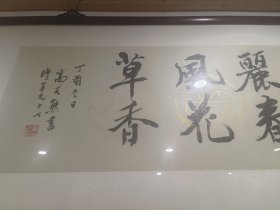 麗春
風花
草香
丁酉冬日
高式熊書
時年九十七